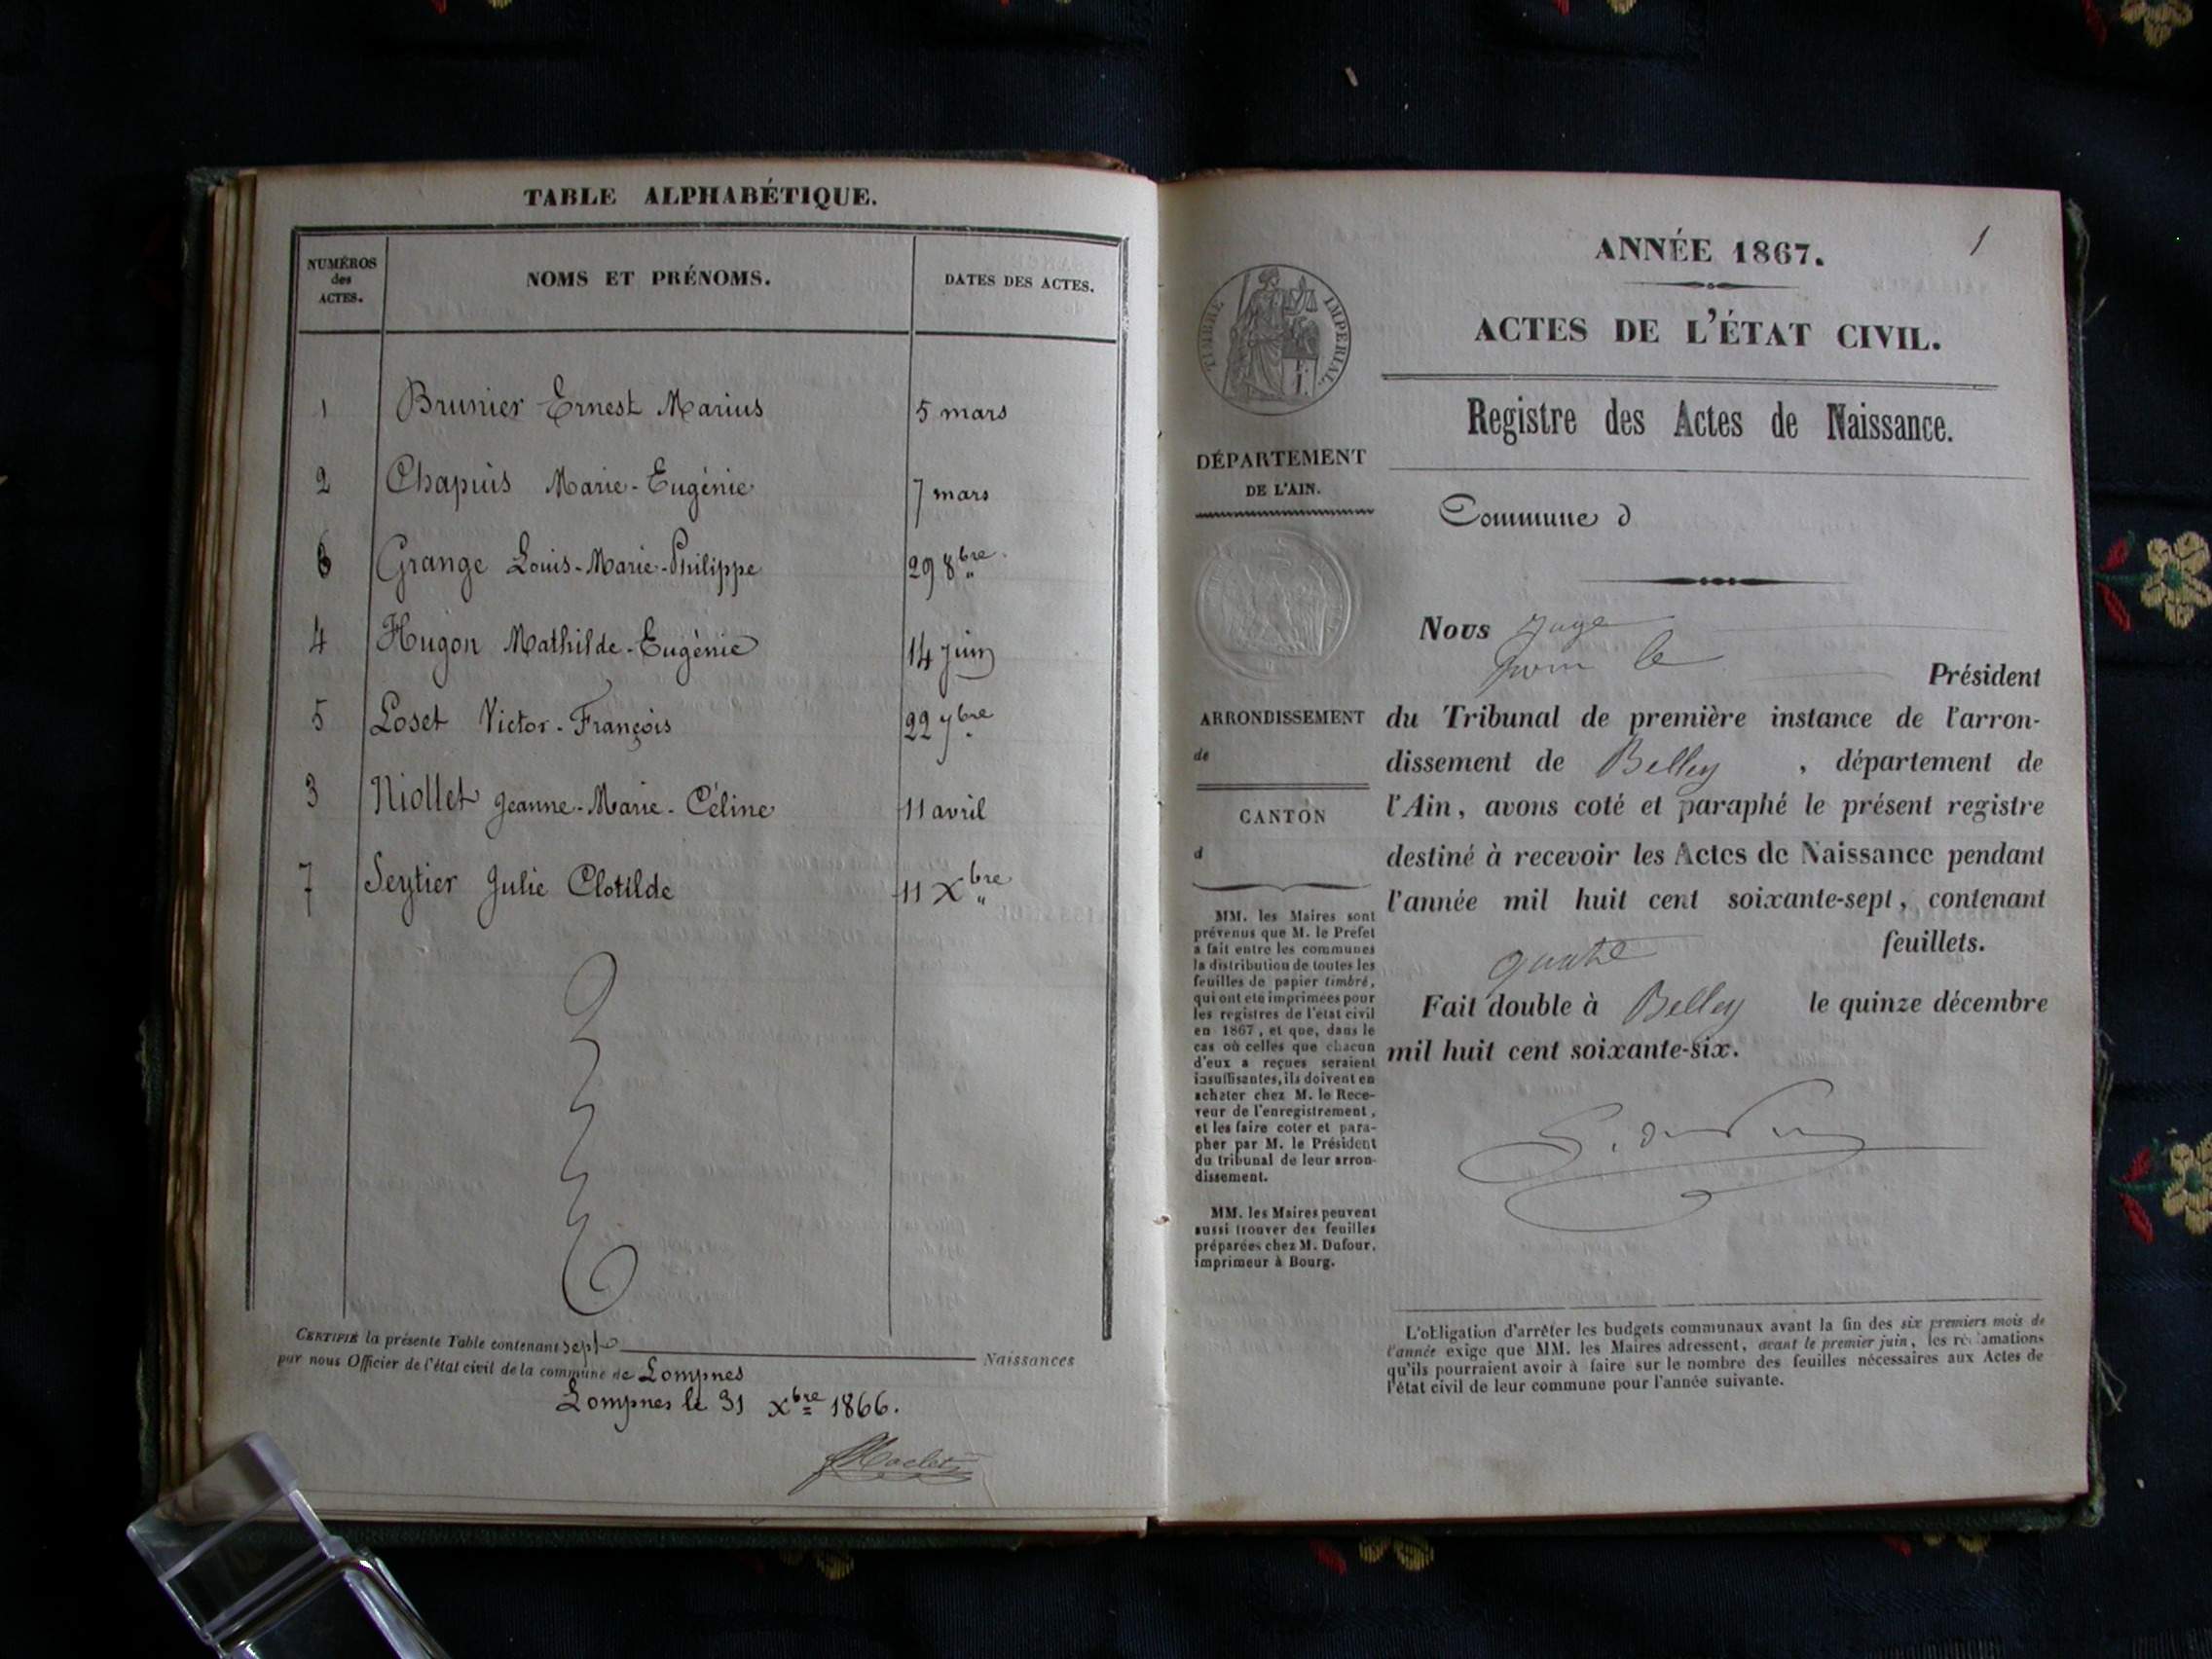 TABLE ALPHABÉTIQUE.
NUMÉROS des ACTES. NOMS ET PRÉNOMS. DATES DES ACTES.
1 Brunier Ernest Marius 5 mars
2 Chapuis Marie-Eugénie 7 mars
6 Grange Louis-Marie-Philippe 29 8bre
4 Hugon Mathilde-Eugénie 14 juin
5 Loset Victor-François 22 7bre
3 Niollet Jeanne-Marie-Céline 11 avril
7 Seytier Julie Clotilde 11 Xbre
CERTIFIÉ la présente Table contenant sept Naissances
par nous Officier de l'état civil de la commune de Lompnes
Lompnes le 31 Xbre 1866.
1
ANNÉE 1867.
ACTES DE L'ÉTAT CIVIL.
TIMBRE IMPÉRIAL.
Registre des Actes de Naissance.
DÉPARTEMENT
DE L'AIN.
Commune d
Nous juge
pour le Président
ARRONDISSEMENT
de
CANTON
d
du Tribunal de première instance de l'arron-
dissement de Belley, département de
l'Ain, avons coté et paraphé le présent registre
destiné à recevoir les Actes de Naissance pendant
l'année mil huit cent soixante-sept, contenant
quatre feuillets.
Fait double à Belley le quinze décembre
mil huit cent soixante-six.
MM. les Maires sont
prévenus que M. le Préfet
a fait entre les communes
la distribution de toutes les
feuilles de papier timbré,
qui ont été imprimées pour
les registres de l'état civil
en 1867, et que, dans le
cas où celles que chacun
d'eux a reçues seraient
insuffisantes, ils doivent en
acheter chez M. le Rece-
veur de l'enregistrement,
et les faire coter et para-
pher par M. le Président
du tribunal de leur arron-
dissement.
MM. les Maires peuvent
aussi trouver des feuilles
préparées chez M. Dufour,
imprimeur à Bourg.
L'obligation d'arrêter les budgets communaux avant la fin des six premiers mois de
l'année exige que MM. les Maires adressent, avant le premier juin, les réclamations
qu'ils pourraient avoir à faire sur le nombre des feuilles nécessaires aux Actes de
l'état civil de leur commune pour l'année suivante.